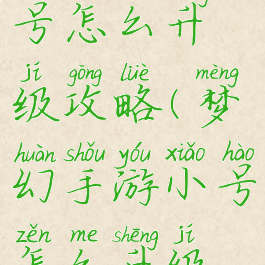 号怎么升
jí gōng lüè mèng
级攻略(梦
huàn shǒu yóu xiǎo hào
幻手游小号
zěn me shēng jí
怎么升级